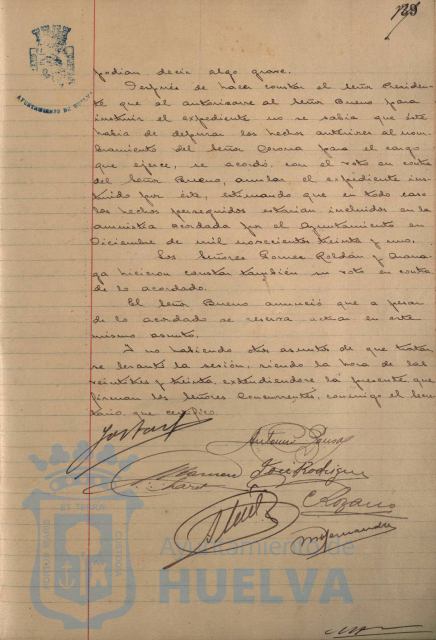 podian decir algo grave.
Después de hacer constar el Señor Presiden-
te que al autorizarse al Señor Bueno para
instruir el expediente no se sabía que éste
había de depurar los hechos anteriores al nom-
bramiento del Señor Corona para el cargo
que ejerce, se acordó, con el voto en contra
del Señor Bueno, anular el expediente ins-
truido por éste, estimando que en todo caso
los hechos perseguidos estarían incluidos en la
amnistía acordada por el Ayuntamiento en
Diciembre de mil novecientos treinta y uno.
Los Señores Gomez Roldán y
hicieron constar también su voto en contra
de lo acordado.
El Señor Bueno anunció que a pesar
de lo acordado se reserva actuar en este
mismo asunto.
Y no habiendo otros asuntos de que tratar
se levantó la sesión, siendo la hora de las
veintitres y treinta, extendiendose la presente que
firman los Señores Concurrentes, conmigo el Secre-
tario, que certifico.
Antonio
José Rodriguez
AYUNTAMIENTO DE HUELVA
Ayuntamiento de
HUELVA